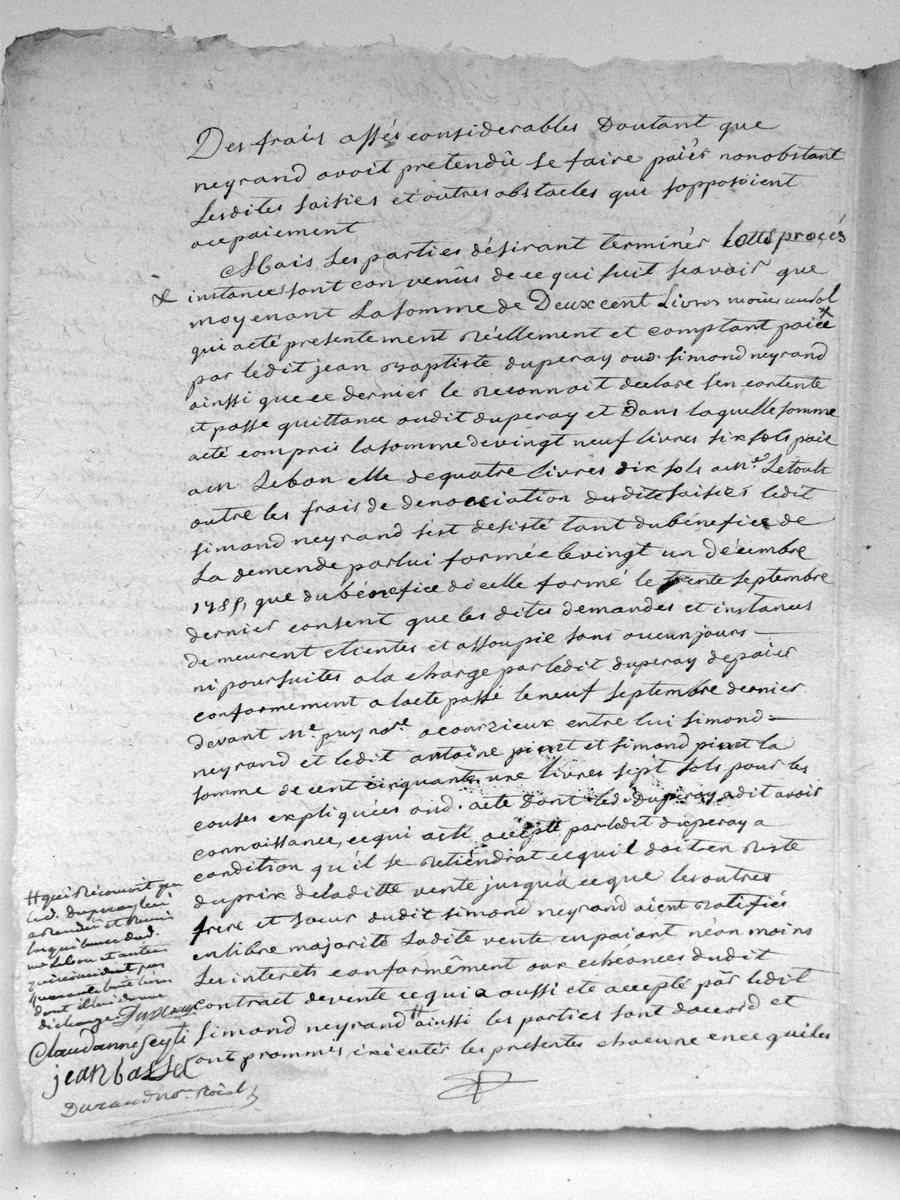 Des frais assés considerables Dautant que
neyrand avoit pretendû se faire paiér nonobstant
Lesdites saisies et autres obstacles qui sopposoient
acepaiement
Mais Les parties désirant terminér procés
instances sont convenûs de ce qui suit scavoir que
moyenant La somme de Deux cent Livres moins un sol
qui a eté presentement réellement et comptant paiée
par ledit jean Baptiste duperay aud. simond neyrand
ainsi que ce dernier le reconnait déclare s'en contente
et passe quittance audit duperay et Dans laquelle somme
a eté compris la somme de vingt neuf livres six sols paié
a un Lebon elle de quatre livres dix sols a Me.
outre les frais de denonciation desdites saisies ledit
simond neyrand s'est desisté tant du bénéfice de
La demende par lui formée le vingt un décembre
1785, que du bénéfice dicelle formé le trente septembre
dernier consent que les dites demandes et instances
demeurent etientes et assoupie sans aucun jours
ni poursuites a la charge par ledit duperay de paier
conformement a lacte passé le neuf septembre dernier
devant Me. puy nore. a courzieux entre lui simond
neyrand et ledit antoine pinet et simond pinet la
somme de cent cinquante une livres sept sols pour les
causes expliquées aud. acte dont led. Duperay a dit avoir
connaissance, ce qui a eté accepté par ledit duperay a
condition qu'il se retiendrat ce quil doit en reste
du prix de laditte vente jusqu'a ce que les autres
frere et soeur dudit simond neyrand aient ratifiés
en libre majorité ladite vente en paiant néan moins
Les interets conformêment aux echéances dudit
contract de vente ce qui a aussi eté accepté par ledit
simond neyrand # ainsi les parties sont daccord et
ont prommis exécuter les presentes chacune en ce qui les
# qui reconnoit que
led. duperay lui
a rendu et remis
les quittances dud.
Lebon et autre
quarante huit livres
dont il lui donne
décharge Duperay
Claudanne Seyti
jean basset
Durand no. Roial